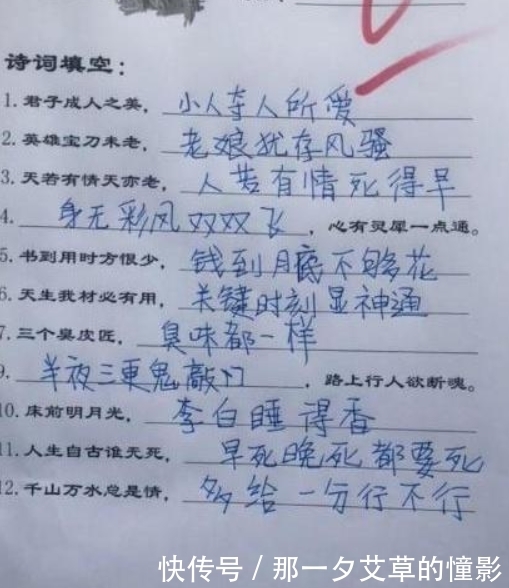 诗词填空：
1. 君子成人之美，小人夺人所爱
2. 英雄宝刀未老，老娘犹存风骚
3. 天若有情天亦老，人若有情死得早
4. 身无彩风双双飞，心有灵犀一点通。
5. 书到用时方恨少，钱到月底不够花
6. 天生我材必有用，关键时刻显神通
7. 三个臭皮匠，臭味都一样
9. 半夜三更鬼敲门，路上行人欲断魂。
10. 床前明月光，李白睡得香
11. 人生自古谁无死，早死晚死都要死
12. 千山万水总是情，多给一分行不行
快传号 / 那一夕艾草的憧影